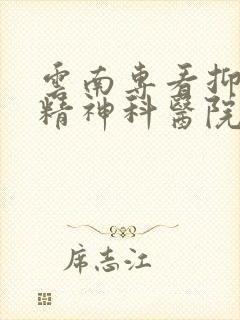 雲南專看抑
精神科醫院
席志江